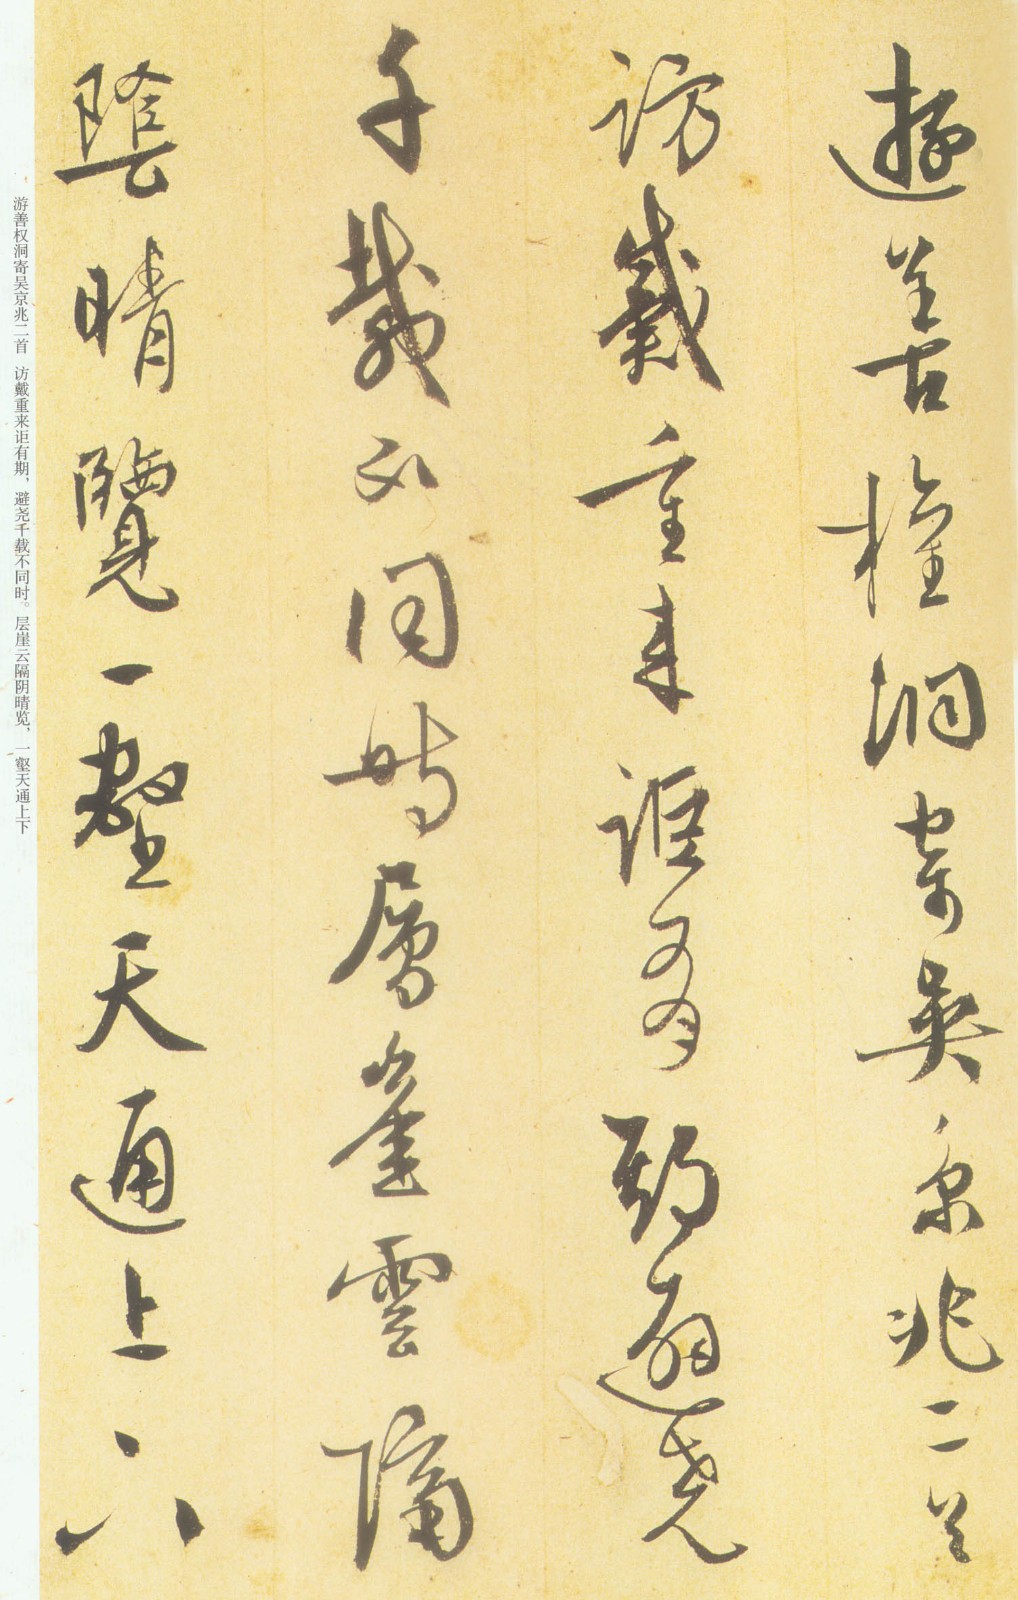 遊善權洞寄吳京兆二首
訪戴重来詎有期避尧
千載不同時層崖雲隔
陰晴覽一壑天通上下
游善权洞寄吴京兆二首 访戴重来讵有期，避尧千载不同时。层崖云隔阴晴览，一壑天通上下